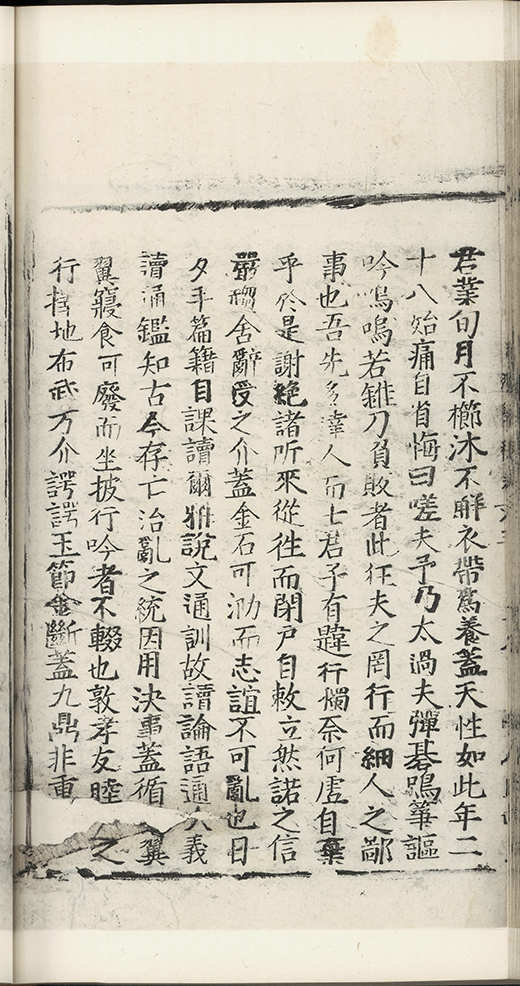 君業旬月不櫛沐不解衣帶為養蓋天性如此年二
十八始痛自首悔曰嗟夫予乃太過夫彈碁鳴箏謳
吟嗚嗚若錐刀負敗者此狂夫之罔行而細人之鄙
事也吾先多達人而士君子有韙行燭奈何虛自棄
乎於是謝絕諸所來從徃而閉戶自敕立然諾之信
嚴取舍辭受之介蓋金石可泐而志誼不可亂也日
夕手篇籍自課讀爾雅說文通訓故讀論語通大義
讀通鑑知古今存亡治亂之統因用決事蓋循翼
翼寢食可廢而坐披行吟者不輟也敦孝友睦之
行擇地布武方介諤諤玉節金斷蓋九鼎非重